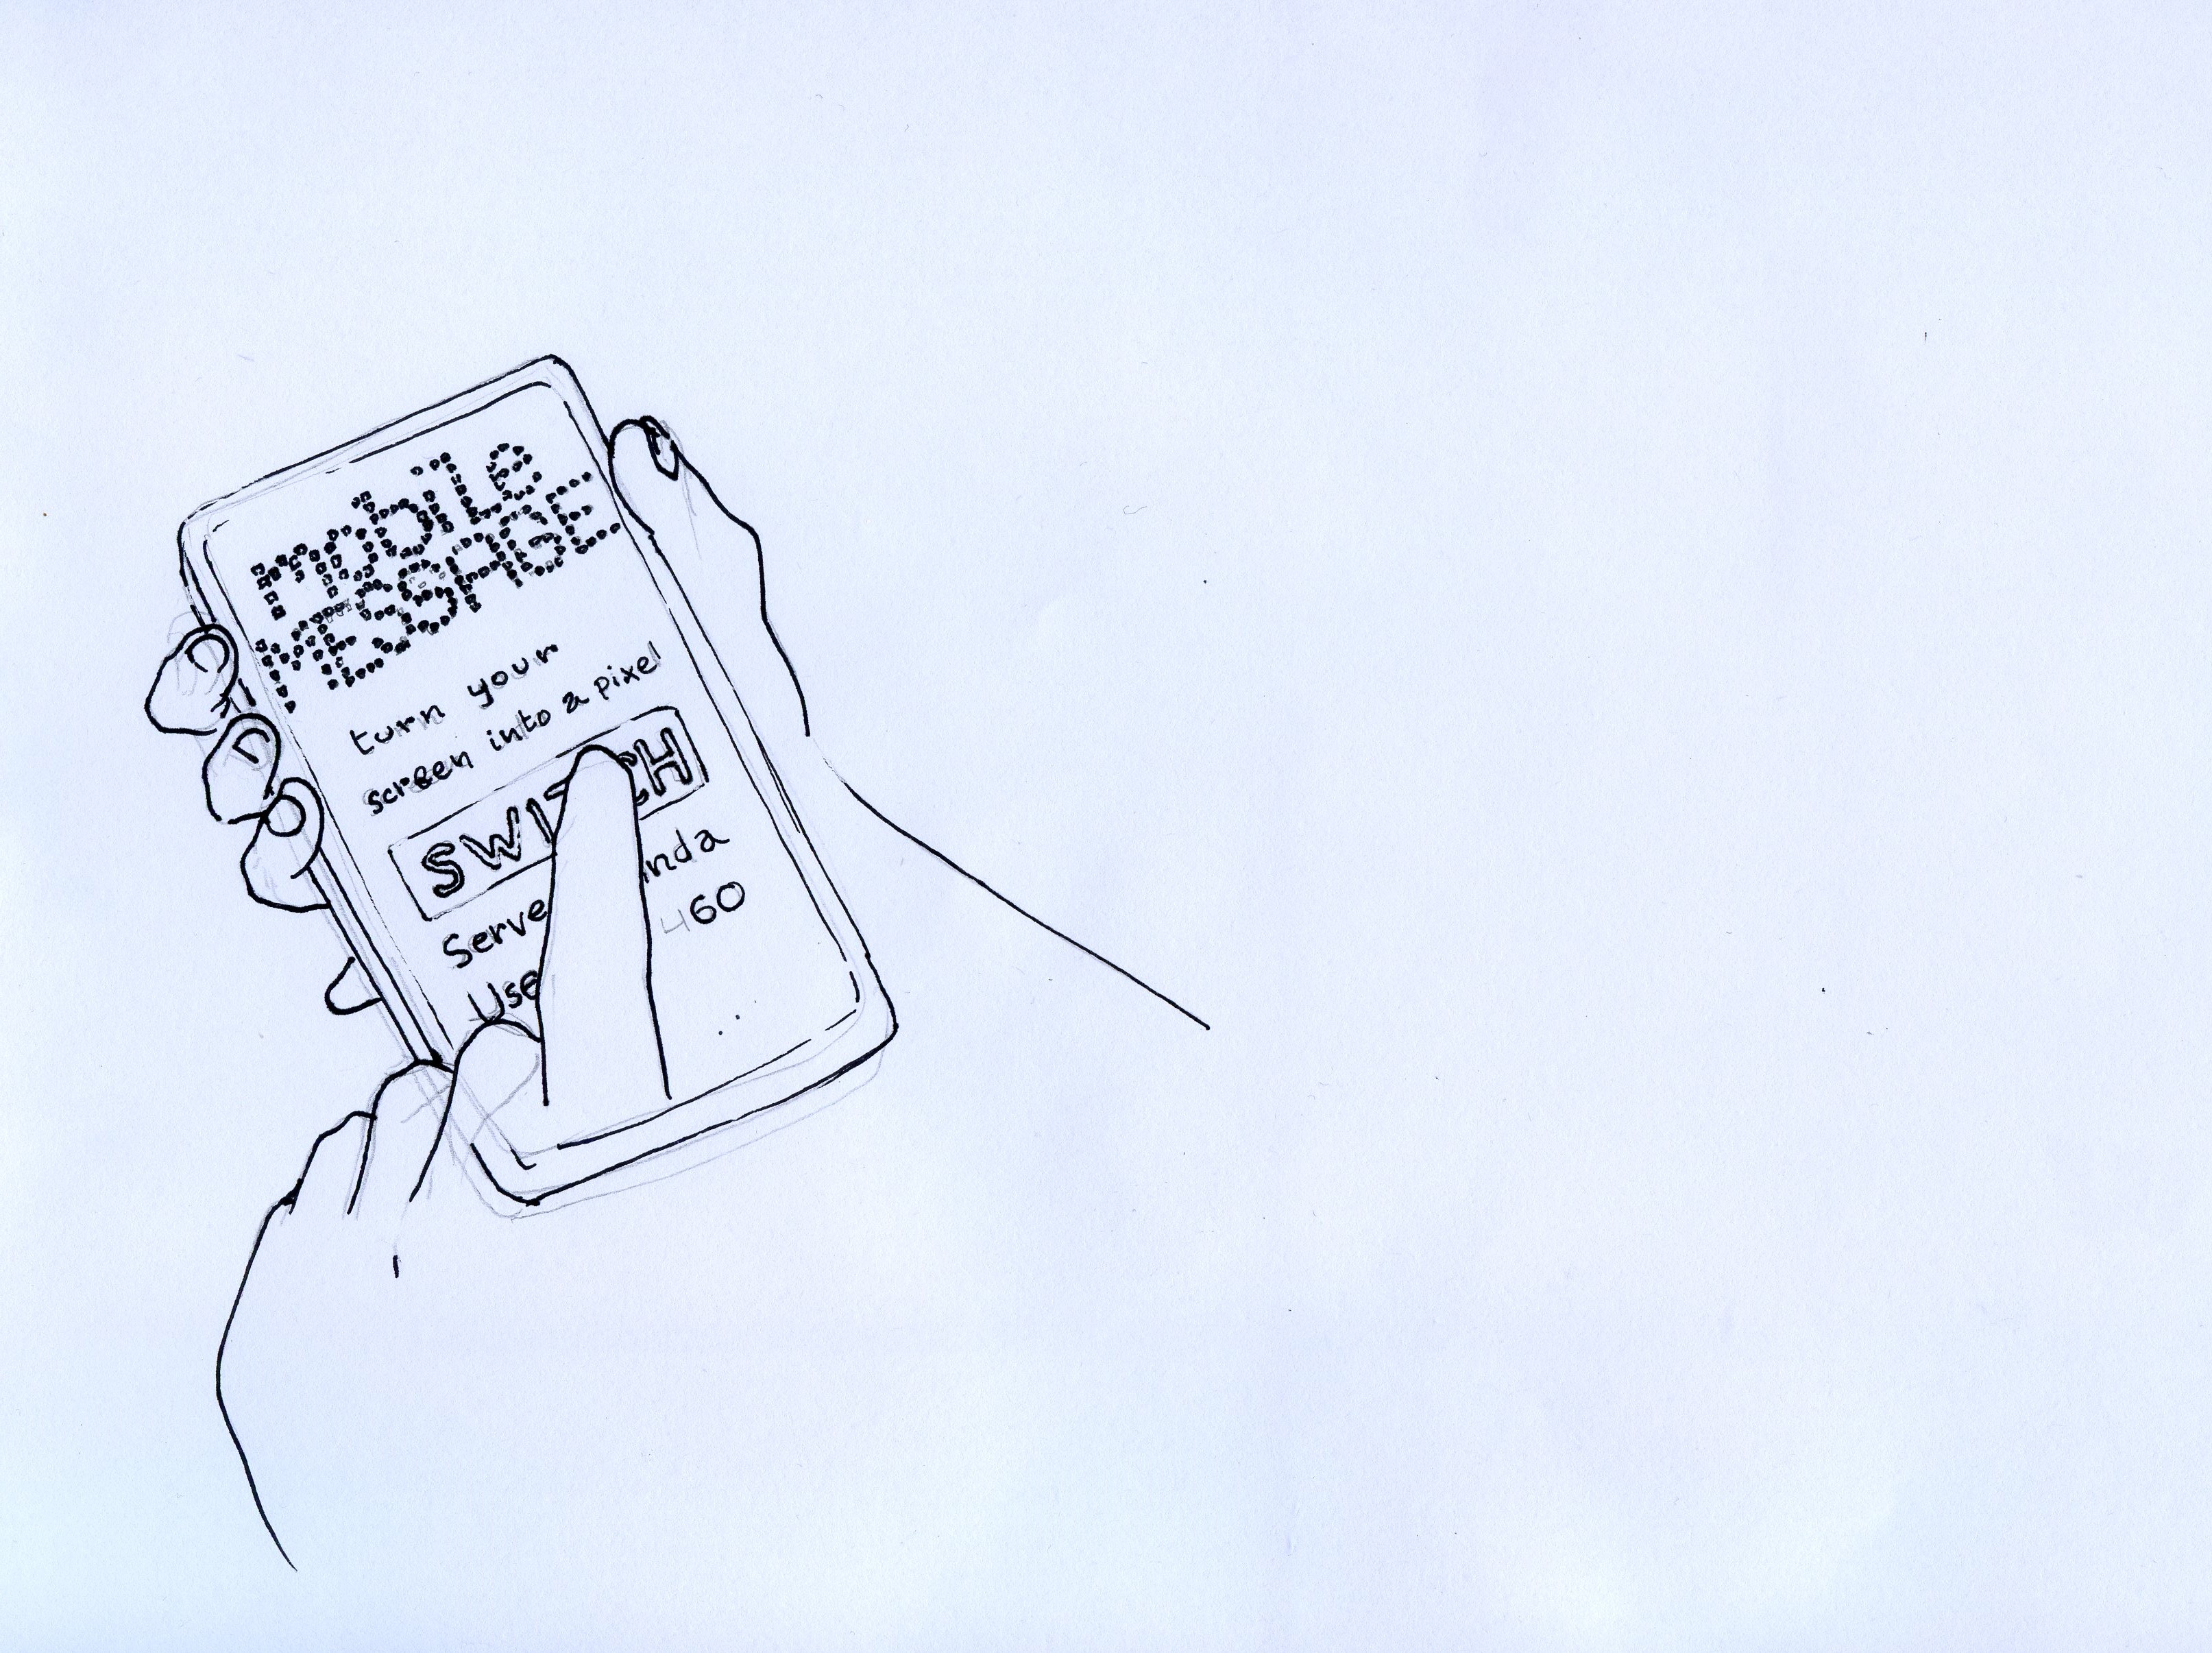 mobile
MESSAGE
turn your
screen into a pixel
SWITCH
Serve nda
Use 460